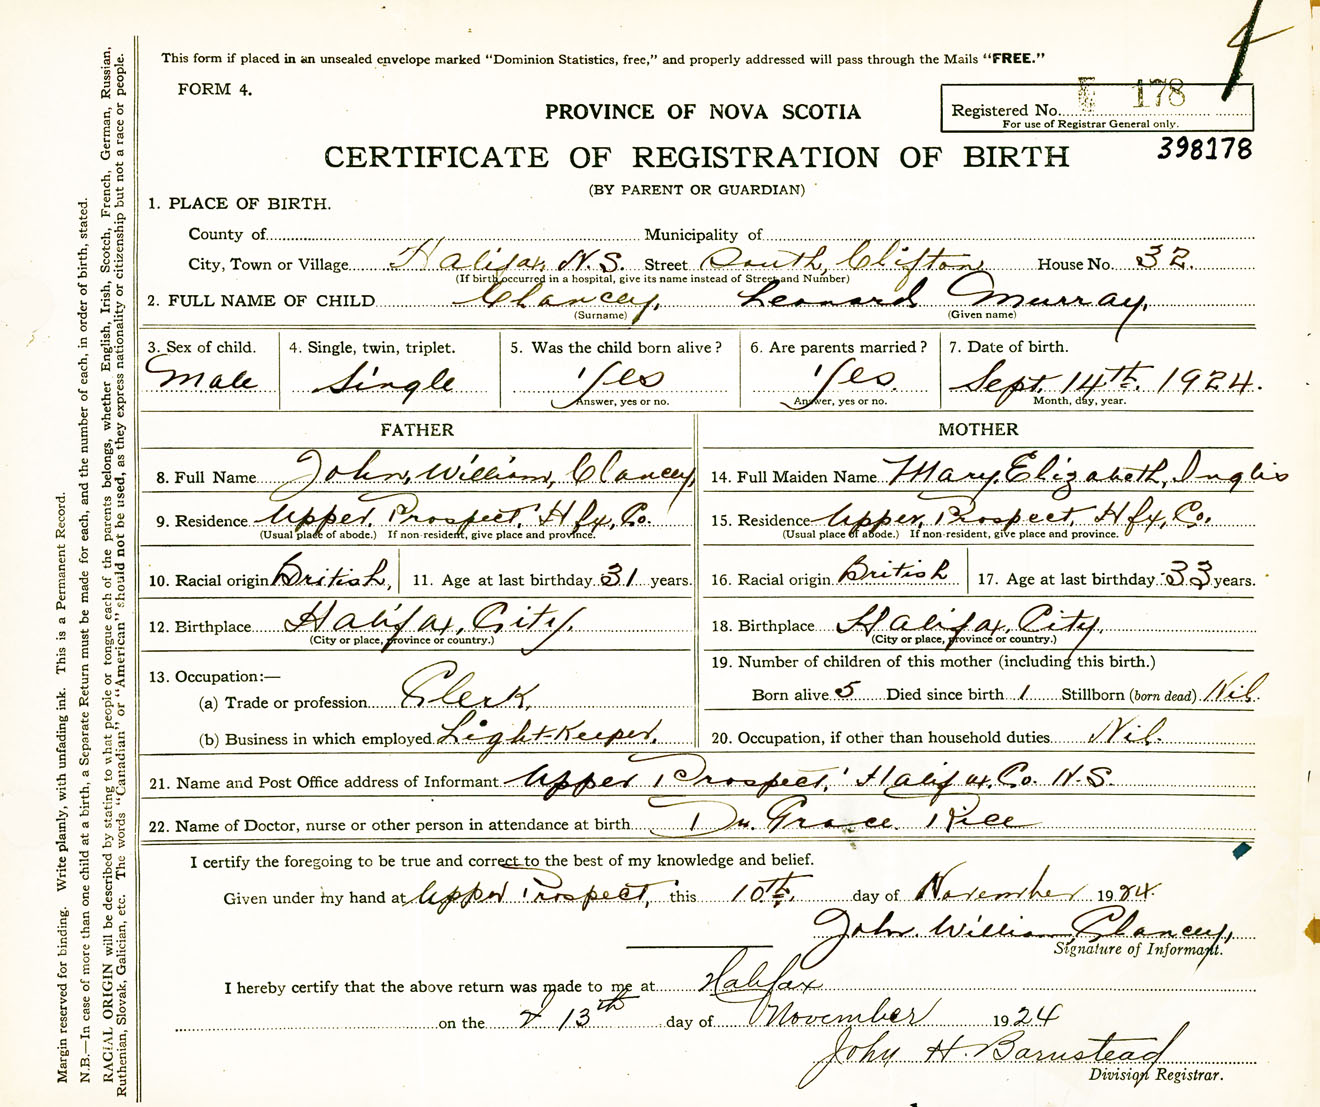 This form if placed in an unsealed envelope marked "Dominion Statistics, free," and properly addressed will pass through the Mails "FREE."
FORM 4.
PROVINCE OF NOVA SCOTIA
Registered No. 178
For use of Registrar General only.
398178
CERTIFICATE OF REGISTRATION OF BIRTH
(BY PARENT OR GUARDIAN)
1. PLACE OF BIRTH.
County of Municipality of
City, Town or Village Halifax, N.S. Street South, Clifton House No. 32.
(If birth occurred in a hospital, give its name instead of Street and Number)
2. FULL NAME OF CHILD Clancey, Leonard Murray,
(Surname) (Given name)
3. Sex of child. 4. Single, twin, triplet. 5. Was the child born alive? 6. Are parents married? 7. Date of birth.
Male Single Yes Yes. Sept. 14th. 1924.
Answer, yes or no. Answer, yes or no. Month, day, year.
FATHER MOTHER
8. Full Name John, William, Clancey, 14. Full Maiden Name Mary, Elizabeth, Inglis
9. Residence Upper, Prospect, Hfx, Co. 15. Residence Upper, Prospect, Hfx, Co.
(Usual place of abode.) If non-resident, give place and province. (Usual place of abode.) If non-resident, give place and province.
10. Racial origin British, 11. Age at last birthday 31 years. 16. Racial origin British 17. Age at last birthday 33 years.
12. Birthplace Halifax, City. 18. Birthplace Halifax, City,
(City or place, province or country.) (City or place, province or country.)
13. Occupation:— 19. Number of children of this mother (including this birth.)
(a) Trade or profession Clerk, Born alive 5 Died since birth 1 Stillborn (born dead) Nil.
(b) Business in which employed Light-Keeper, 20. Occupation, if other than household duties Nil.
21. Name and Post Office address of Informant Upper Prospect, Halifax, Co. N.S.
22. Name of Doctor, nurse or other person in attendance at birth Dr. Grace Rice
I certify the foregoing to be true and correct to the best of my knowledge and belief.
Given under my hand at Upper Prospect, this 10th, day of November 1924.
John William Clancey,
Signature of Informant.
I hereby certify that the above return was made to me at Halifax
on the 13th day of November 1924
John H. Barnstead
Division Registrar.
Margin reserved for binding. Write plainly, with unfading ink. This is a Permanent Record.
N.B.—In case of more than one child at a birth, a Separate Return must be made for each, and the number of each, in order of birth, stated.
RACIAL ORIGIN will be described by stating to what people or tongue each of the parents belongs, whether English, Irish, Scotch, French, German, Russian,
Ruthenian, Slovak, Galician, etc. The words "Canadian" or "American" should not be used, as they express nationality or citizenship but not a race or people.